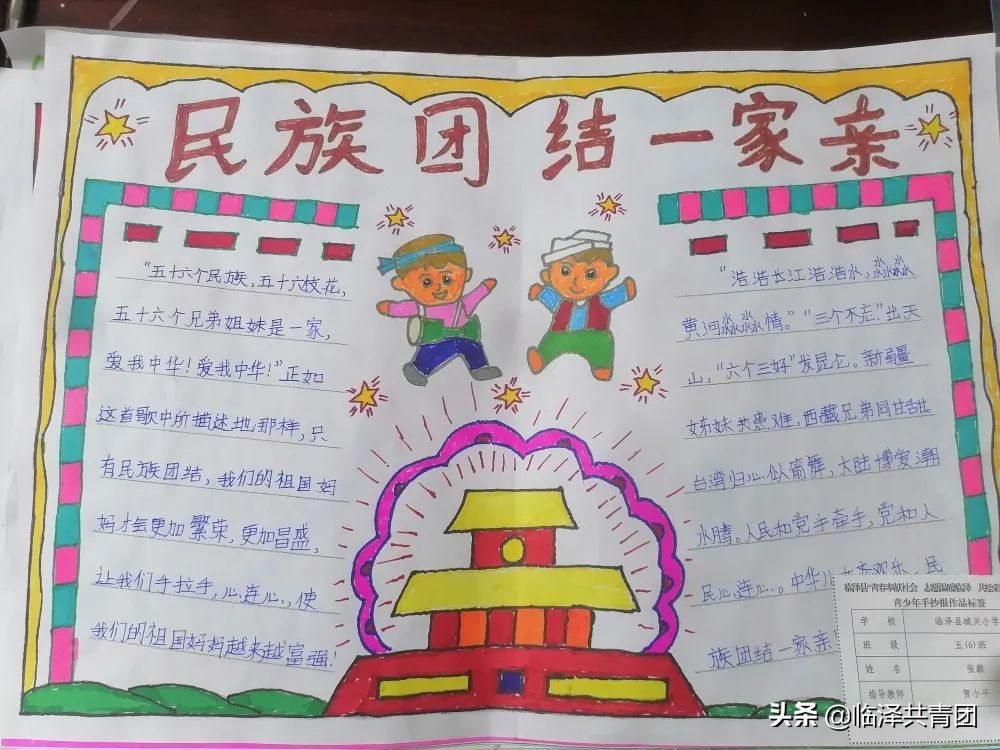 民族团结一家亲
"五十六个民族,五十六枝花,
五十六个兄弟姐妹是一家,
爱我中华!爱我中华!"正如
这首歌中所描述地那样,只
有民族团结,我们的祖国妈
妈才会更加繁荣,更加昌盛,
让我们手拉手,心连心,使
我们的祖国妈妈越来越富强!
"浩浩长江浩浩水,淼淼
黄河淼淼情。""三个不忘"出天
山,"六个三好"发昆仑。新疆
姊妹共患难,西藏兄弟同甘甜。
台湾归心似箭舞,大陆博爱潮
水晴。人民和党手牵手,党和人
民心连心。中华儿女齐欢乐,民
族团结一家亲
临泽县"青春奉献社会 志愿温暖临泽 共绘
青少年手抄报作品标签
学校 临泽县城关小学
班级 五(6)班
姓名 张毅
指导教师 贾小平
头条 @临泽共青团